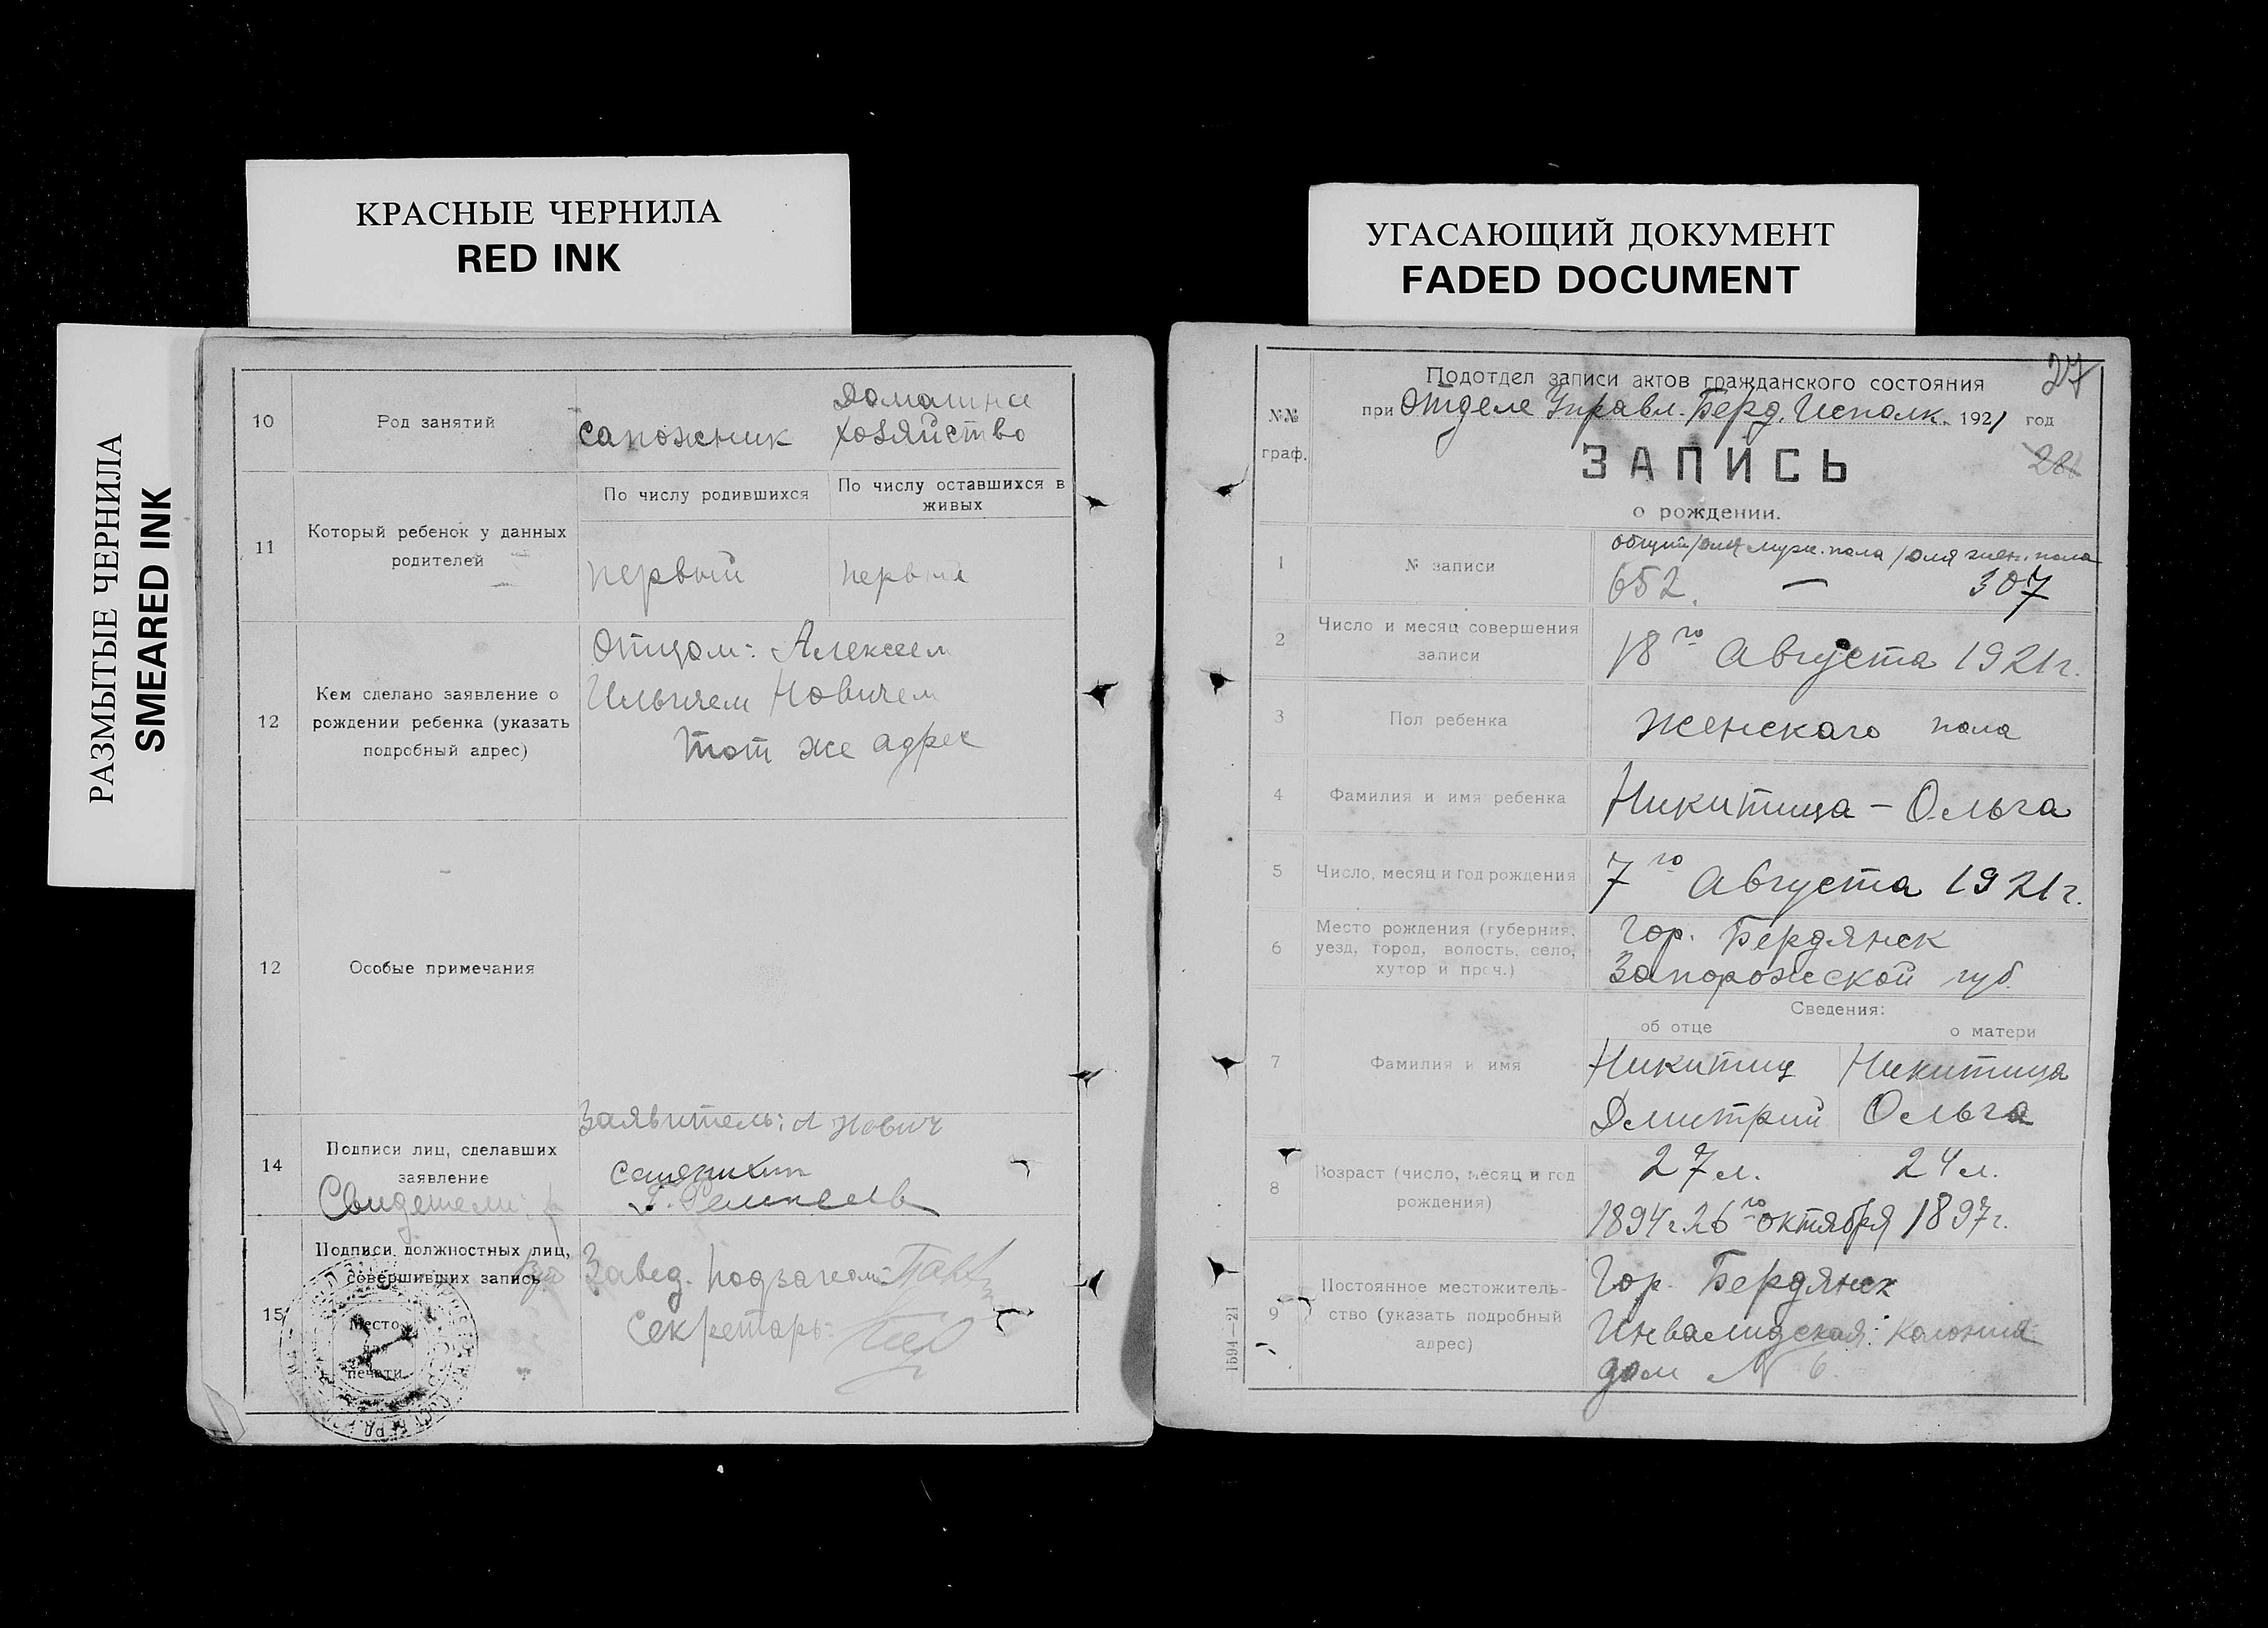 КРАСНЫЕ ЧЕРНИЛА
RED INK
УГАСАЮЩИЙ ДОКУМЕНТ
FADED DOCUMENT
РАЗМЫТЫЕ ЧЕРНИЛА
SMEARED INK
10
Род занятий
сапожник
Домашнее
хозяйство
11
Который ребенок у данных
родителей
По числу родившихся
По числу оставшихся в
живых
первый
первый
12
Кем сделано заявление о
рождении ребенка (указать
подробный адрес)
Отцом: Алексеем
Ильичем Новичем
Тот же адрес
12
Особые примечания
14
Подписи лиц, сделавших
заявление
Свидетели:
Заявитель: А Нович
15
Подписи должностных лиц,
совершивших запись
Место
для
печати
Завед. подзагсом:
Секретарь:
27
Подотдел записи актов гражданского состояния
при Отделе Управл. Берд. Исполк. 1921 год
№№
граф.
ЗАПИСЬ
о рождении.
1
№ записи
общий/для мужс. пола/для жен. пола
652. — 307
2
Число и месяц совершения
записи
18го Августа 1921 г.
3
Пол ребенка
Женскаго пола
4
Фамилия и имя ребенка
Никитица - Ольга
5
Число, месяц и год рождения
7го Августа 1921 г.
6
Место рождения (губерния,
уезд, город, волость, село,
хутор и проч.)
Гор. Бердянск
Запорожской губ.
Сведения:
об отце
о матери
7
Фамилия и имя
Никитиц
Дмитрий
Никитица
Ольга
8
Возраст (число, месяц и год
рождения)
27 л. 24 л.
1894 г. 26го октября 1897 г.
9
Постоянное местожитель-
ство (указать подробный
адрес)
Гор. Бердянск
Инвалидская: колония
дом № 6.
1594—21